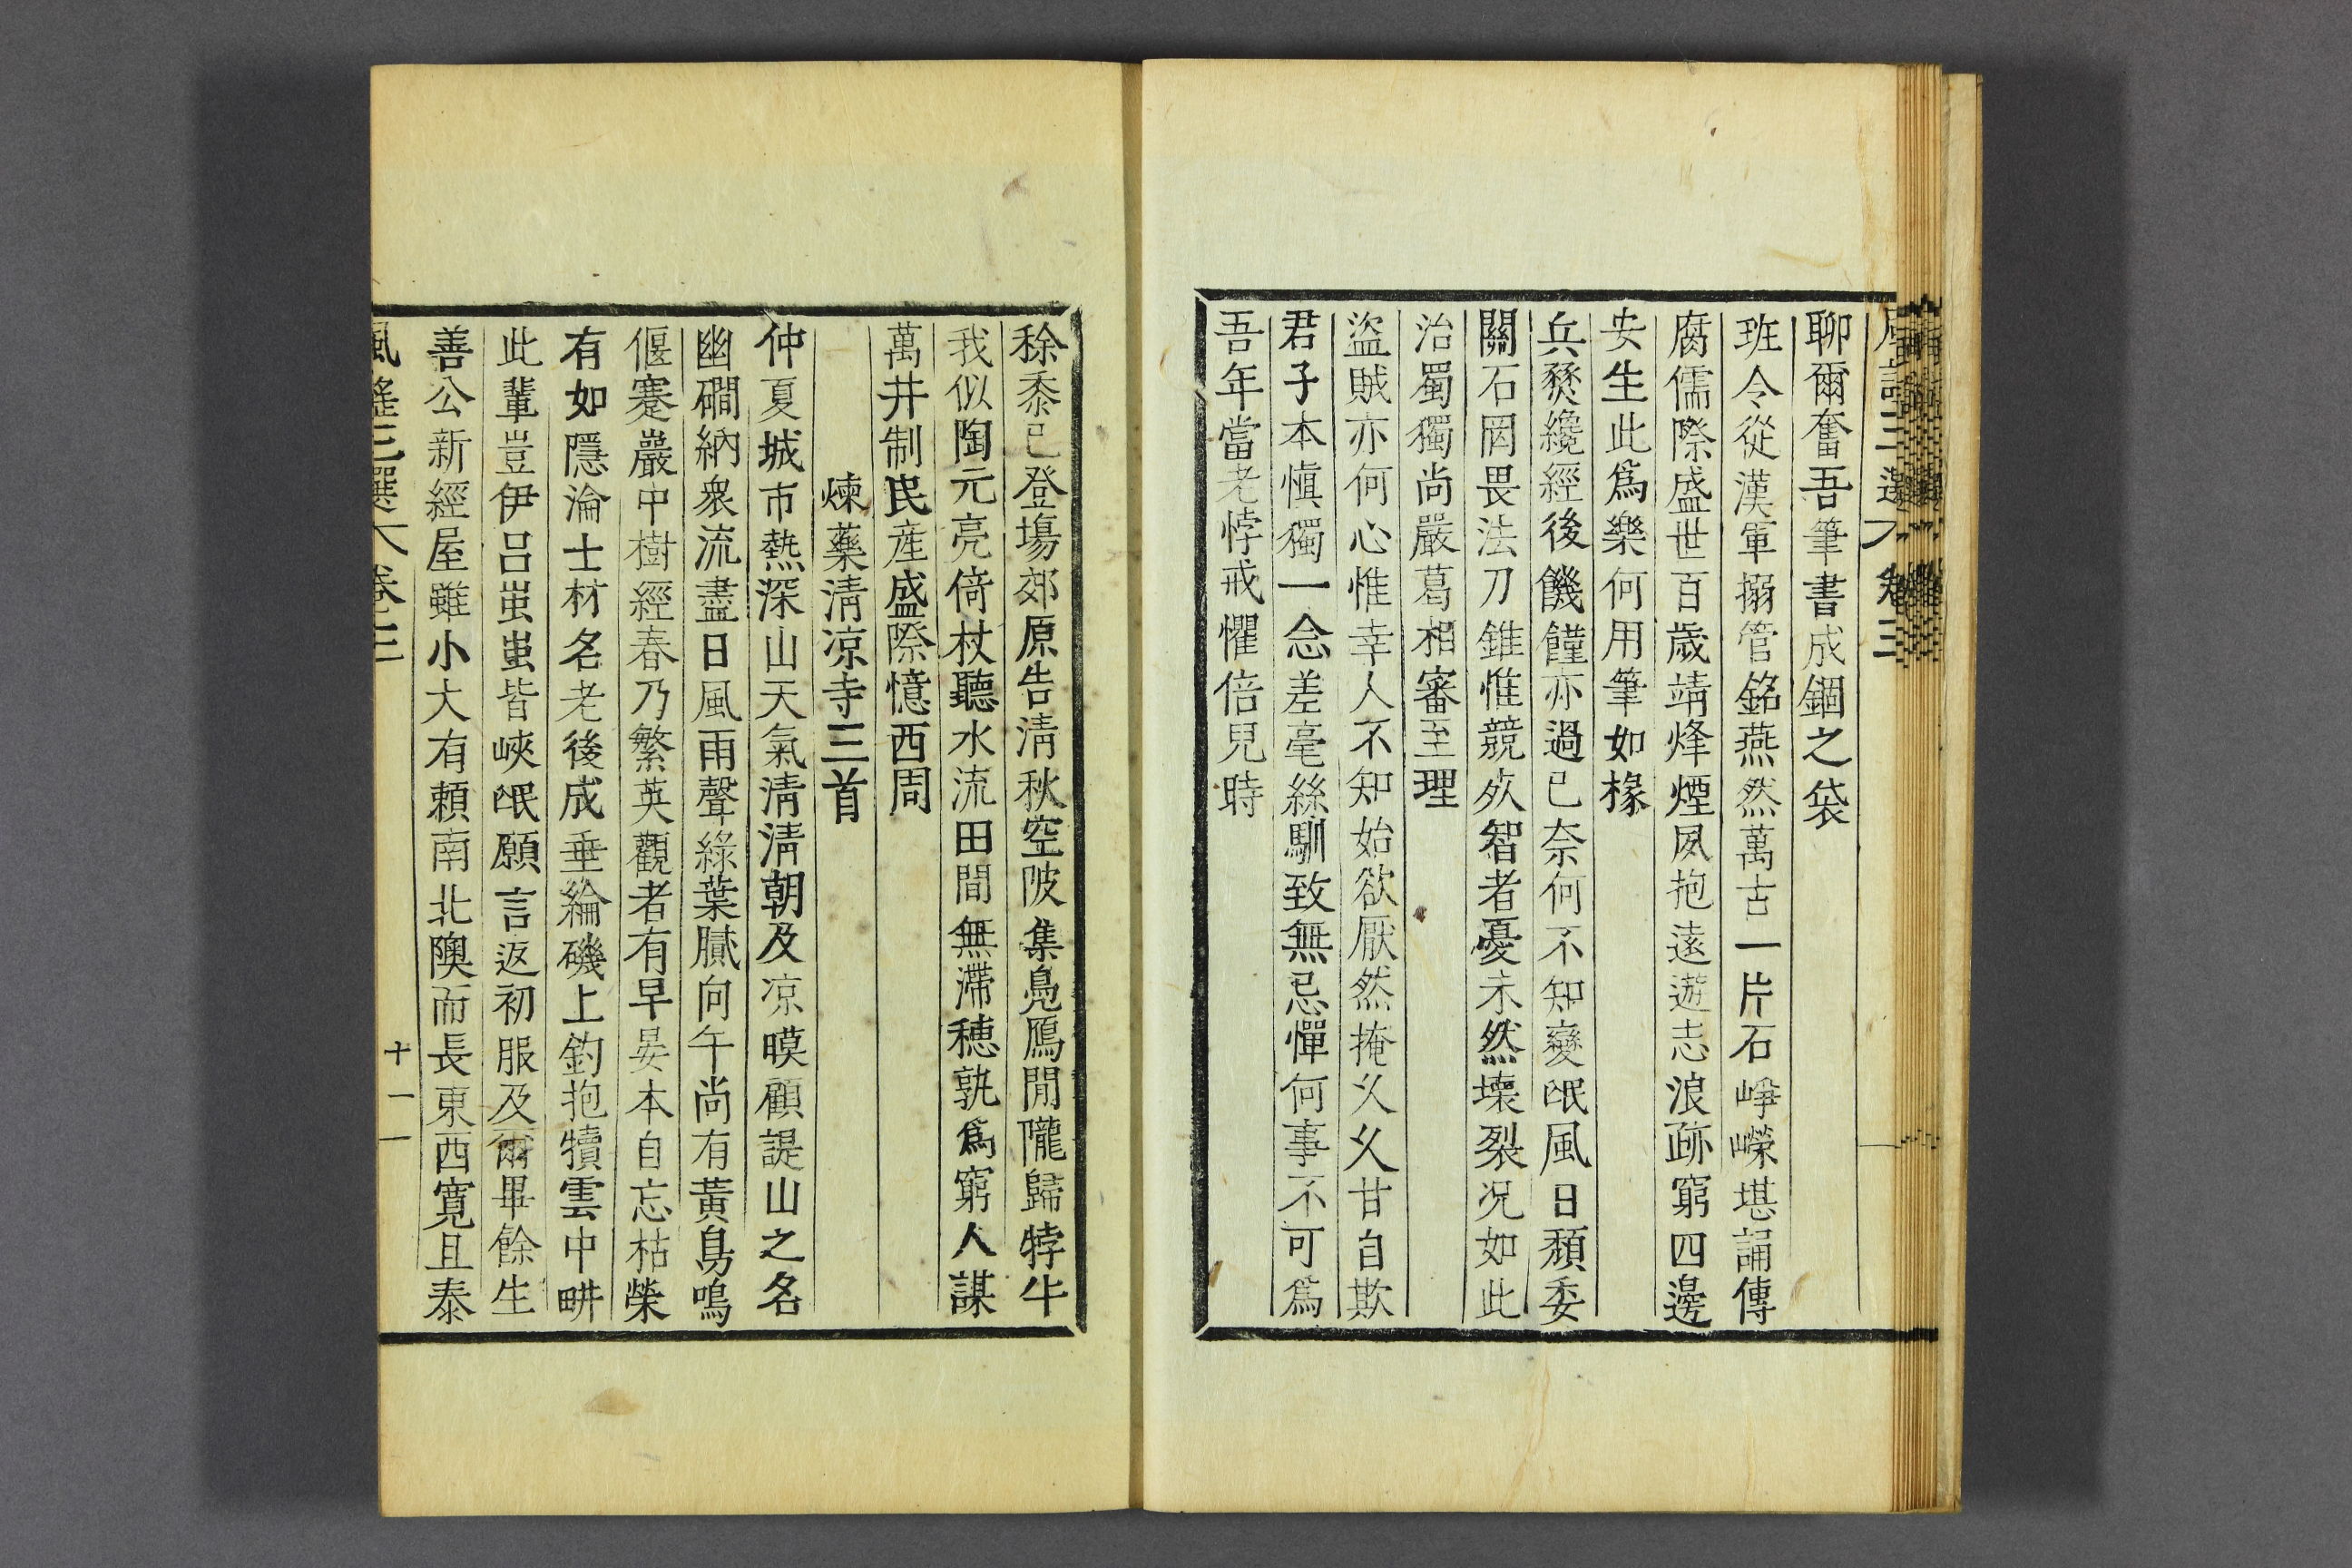 聊爾奮吾筆書成錮之袋
班令從漢軍搦管銘燕然萬古一片石崢嶸堪誦傳
腐儒際盛世百歲靖烽煙夙抱遠遊志浪跡窮四邊
安生此爲樂何用筆如椽
兵燹纔經後饑饉亦過已奈何不知變氓風日頹委
關石罔畏法刀錐惟競攽智者憂未然壞裂况如此
治蜀獨尚嚴葛相審至理
盜賊亦何心惟幸人不知始欲厭然掩乂乂甘自欺
君子本慎獨一念差毫絲馴致無忌憚何事不可爲
吾年當老悖戒懼倍兒時
稌黍已登塲郊原告淸秋空陂集鳧鴈閒隴歸牸牛
我似陶元亮倚杖聽水流田間無滯穗孰爲窮人謀
萬井制民産盛際憶西周
煉藥淸凉寺三首
仲夏城市熱深山天氣淸淸朝及凉暯顧諟山之名
幽磵納衆流盡日風雨聲綠葉膩向午尚有黃鳥鳴
偃蹇巖中樹經春乃繁英觀者有早晏本自忘枯榮
有如隱淪士材名老後成垂綸磯上釣抱犢雲中畊
此輩豈伊呂蚩蚩皆峽氓願言返初服及爾畢餘生
善公新經屋雖小大有賴南北隩而長東西寬且泰
風謠三選 卷三
十一